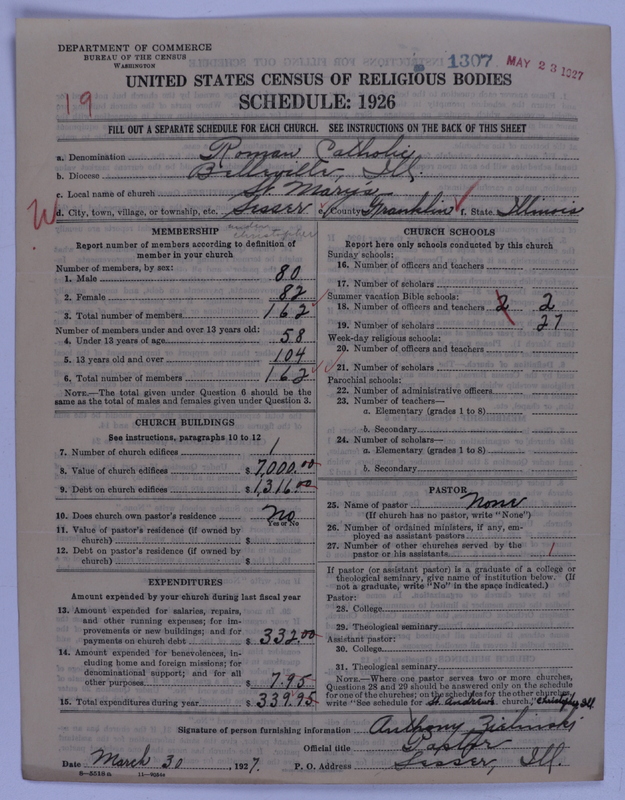 DEPARTMENT OF COMMERCE
BUREAU OF THE CENSUS
WASHINGTON
1307 MAY 23 1927
UNITED STATES CENSUS OF RELIGIOUS BODIES
19
SCHEDULE: 1926
FILL OUT A SEPARATE SCHEDULE FOR EACH CHURCH. SEE INSTRUCTIONS ON THE BACK OF THIS SHEET
a. Denomination Roman Catholic
b. Diocese Belleville, Ill.
c. Local name of church St. Marys
d. City, town, village, or township, etc. Sesser e. County Franklin f. State Illinois
MEMBERSHIP
Christopher
Report number of members according to definition of
member in your church
Number of members, by sex:
1. Male 80
2. Female 82
3. Total number of members 162
Number of members under and over 13 years old:
4. Under 13 years of age 58
5. 13 years old and over 104
6. Total number of members 162
NOTE.—The total given under Question 6 should be the
same as the total of males and females given under Question 3.
CHURCH BUILDINGS
See instructions, paragraphs 10 to 12
7. Number of church edifices 1
8. Value of church edifices $ 7,000.00
9. Debt on church edifices $ 1,316.00
10. Does church own pastor's residence No
Yes or No
11. Value of pastor's residence (if owned by
church) $
12. Debt on pastor's residence (if owned by
church) $
EXPENDITURES
Amount expended by your church during last fiscal year
13. Amount expended for salaries, repairs,
and other running expenses; for im-
provements or new buildings; and for
payments on church debt $ 332.00
14. Amount expended for benevolences, in-
cluding home and foreign missions; for
denominational support; and for all
other purposes $ 7.95
15. Total expenditures during year $ 339.95
CHURCH SCHOOLS
Report here only schools conducted by this church
Sunday schools:
16. Number of officers and teachers
17. Number of scholars
Summer vacation Bible schools:
18. Number of officers and teachers 2 2
19. Number of scholars 27
Week-day religious schools:
20. Number of officers and teachers
21. Number of scholars
Parochial schools:
22. Number of administrative officers
23. Number of teachers—
a. Elementary (grades 1 to 8)
b. Secondary
24. Number of scholars—
a. Elementary (grades 1 to 8)
b. Secondary
PASTOR
25. Name of pastor None
(If church has no pastor, write "None")
26. Number of ordained ministers, if any, em-
ployed as assistant pastors
27. Number of other churches served by the
pastor or his assistants 1
If pastor (or assistant pastor) is a graduate of a college or
theological seminary, give name of institution below. (If
not a graduate, write "No" in the space indicated.)
Pastor:
28. College
29. Theological seminary
Assistant pastor:
30. College
31. Theological seminary
NOTE.—Where one pastor serves two or more churches,
Questions 28 and 29 should be answered only on the schedule
for one of the churches; on the schedules for the other churches
write "See schedule for St. Andrews church," Christopher Ill.
Signature of person furnishing information Anthony Zielinski
Official title Pastor
Date March 30, 1927. P. O. Address Sesser, Ill.